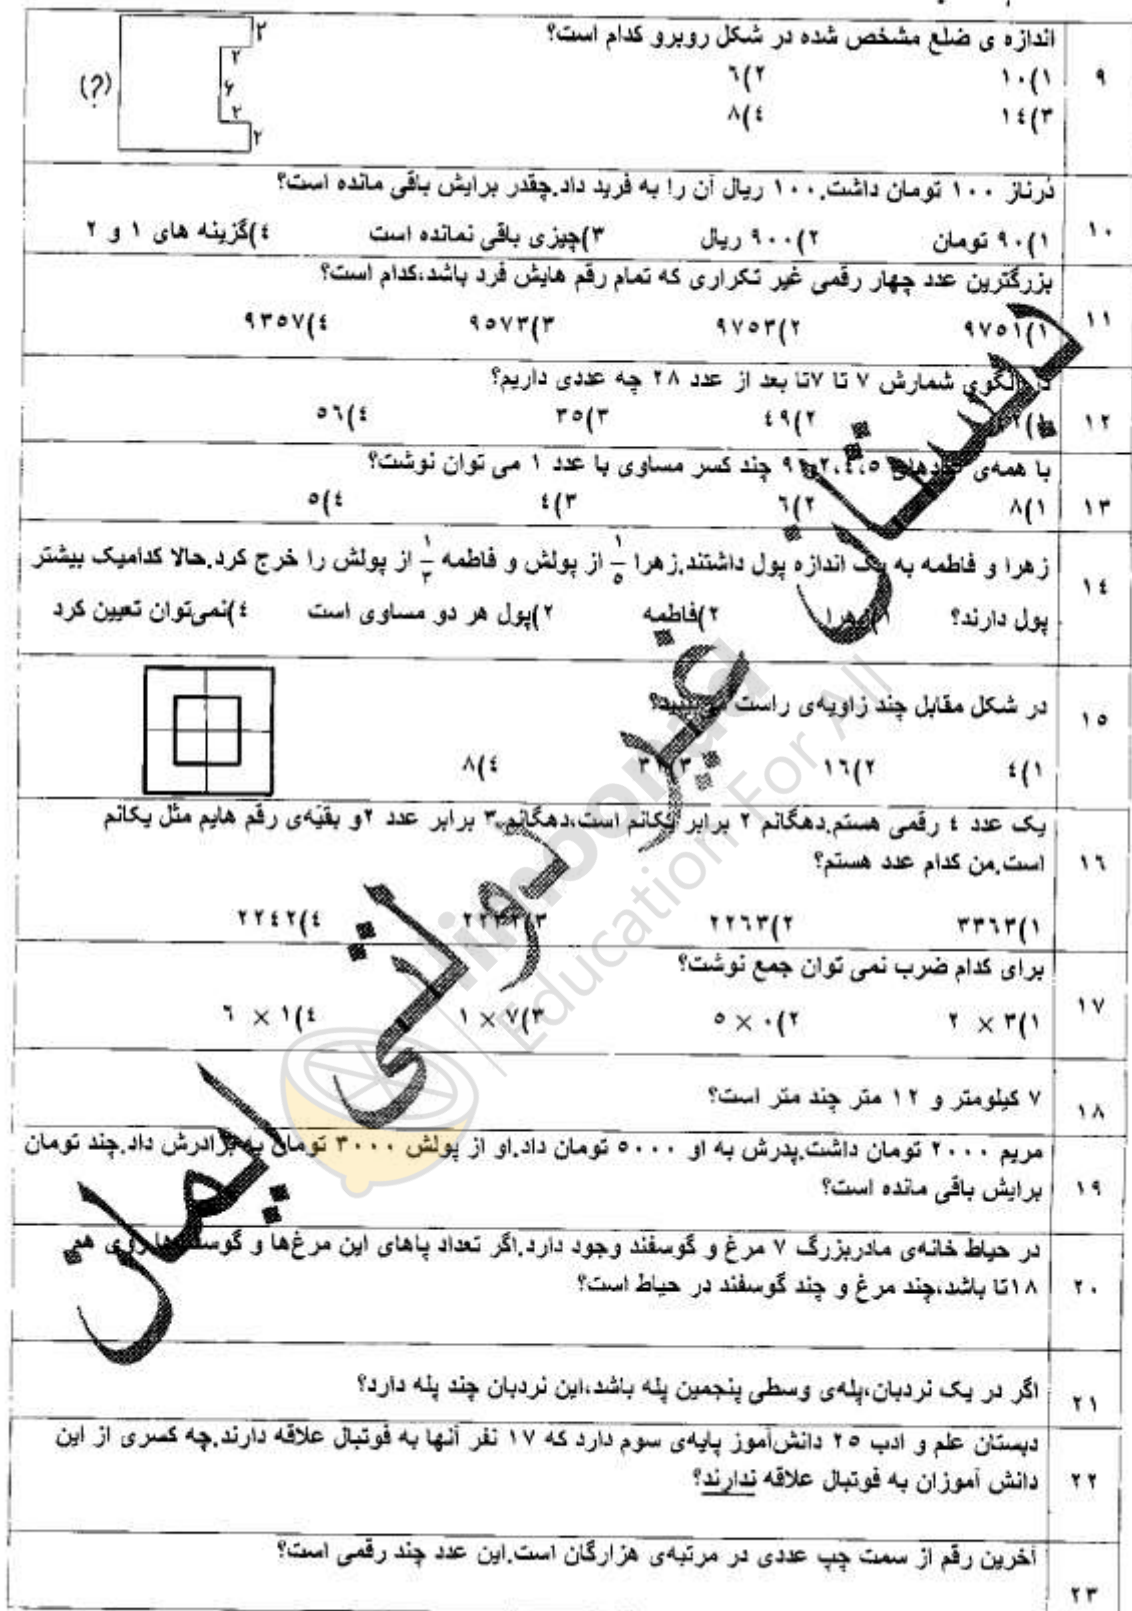 اندازه ی ضلع مشخص شده در شکل روبرو کدام است؟
۹
۱)۱۰ ۲)۶
۳)۱٤ ٤)۸
(?) ۲ ۲ ۶ ۲ ۲
دُرناز ۱۰۰ تومان داشت.۱۰۰ ریال آن را به فرید داد.چقدر برایش باقی مانده است؟
۱۰
۱)۹۰ تومان ۲)۹۰۰ ریال ۳)چیزی باقی نمانده است ٤)گزینه های ۱ و ۲
بزرگترین عدد چهار رقمی غیر تکراری که تمام رقم هایش فرد باشد،کدام است؟
۱۱
۱)۹۷۵۱ ۲)۹۷۵۳ ۳)۹۵۷۳ ٤)۹۳۵۷
در الگوی شمارش ۷ تا ۷تا بعد از عدد ۲۸ چه عددی داریم؟
۱۲
۲)٤۹ ۳)۳۵ ٤)۵۶
با همه‌ی عددهای ۵،٤،۲و۹ چند کسر مساوی با عدد ۱ می توان نوشت؟
۱۳
۱)۸ ۲)۶ ۳)٤ ٤)۵
زهرا و فاطمه به یک اندازه پول داشتند.زهرا ۱/۵ از پولش و فاطمه ۱/۳ از پولش را خرج کرد.حالا کدامیک بیشتر
۱٤
پول دارند؟ ۱)زهرا ۲)فاطمه ۲)پول هر دو مساوی است ٤)نمی‌توان تعیین کرد
در شکل مقابل چند زاویه‌ی راست
۱۵
۱)٤ ۲)۱۶ ٤)۸
یک عدد ٤ رقمی هستم.دهگانم ۲ برابر یکانم است،دهگانم ۳ برابر عدد ۲و بقیّه‌ی رقم هایم مثل یکانم
است.من کدام عدد هستم؟
۱۶
۱)۳۳۶۳ ۲)۲۲۶۳ ٤)۲۲٤۲
برای کدام ضرب نمی توان جمع نوشت؟
۱۷
۱)۳ × ۲ ۲)۰ × ۵ ۳)۷ × ۱ ٤)۱ × ۶
۷ کیلومتر و ۱۲ متر چند متر است؟
۱۸
مریم ۲۰۰۰ تومان داشت.پدرش به او ۵۰۰۰ تومان داد.او از پولش ۳۰۰۰ تومان به برادرش داد.چند تومان
برایش باقی مانده است؟
۱۹
در حیاط خانه‌ی مادربزرگ ۷ مرغ و گوسفند وجود دارد.اگر تعداد پاهای این مرغ‌ها و گوسفندها روی هم
۱۸تا باشد،چند مرغ و چند گوسفند در حیاط است؟
۲۰
اگر در یک نردبان،پله‌ی وسطی پنجمین پله باشد،این نردبان چند پله دارد؟
۲۱
دبستان علم و ادب ۲۵ دانش‌آموز پایه‌ی سوم دارد که ۱۷ نفر آنها به فوتبال علاقه دارند.چه کسری از این
دانش آموزان به فوتبال علاقه ندارند؟
۲۲
آخرین رقم از سمت چپ عددی در مرتبه‌ی هزارگان است.این عدد چند رقمی است؟
۲۳
دبستان غیر دولتی ایمان
limoonad
Education For All